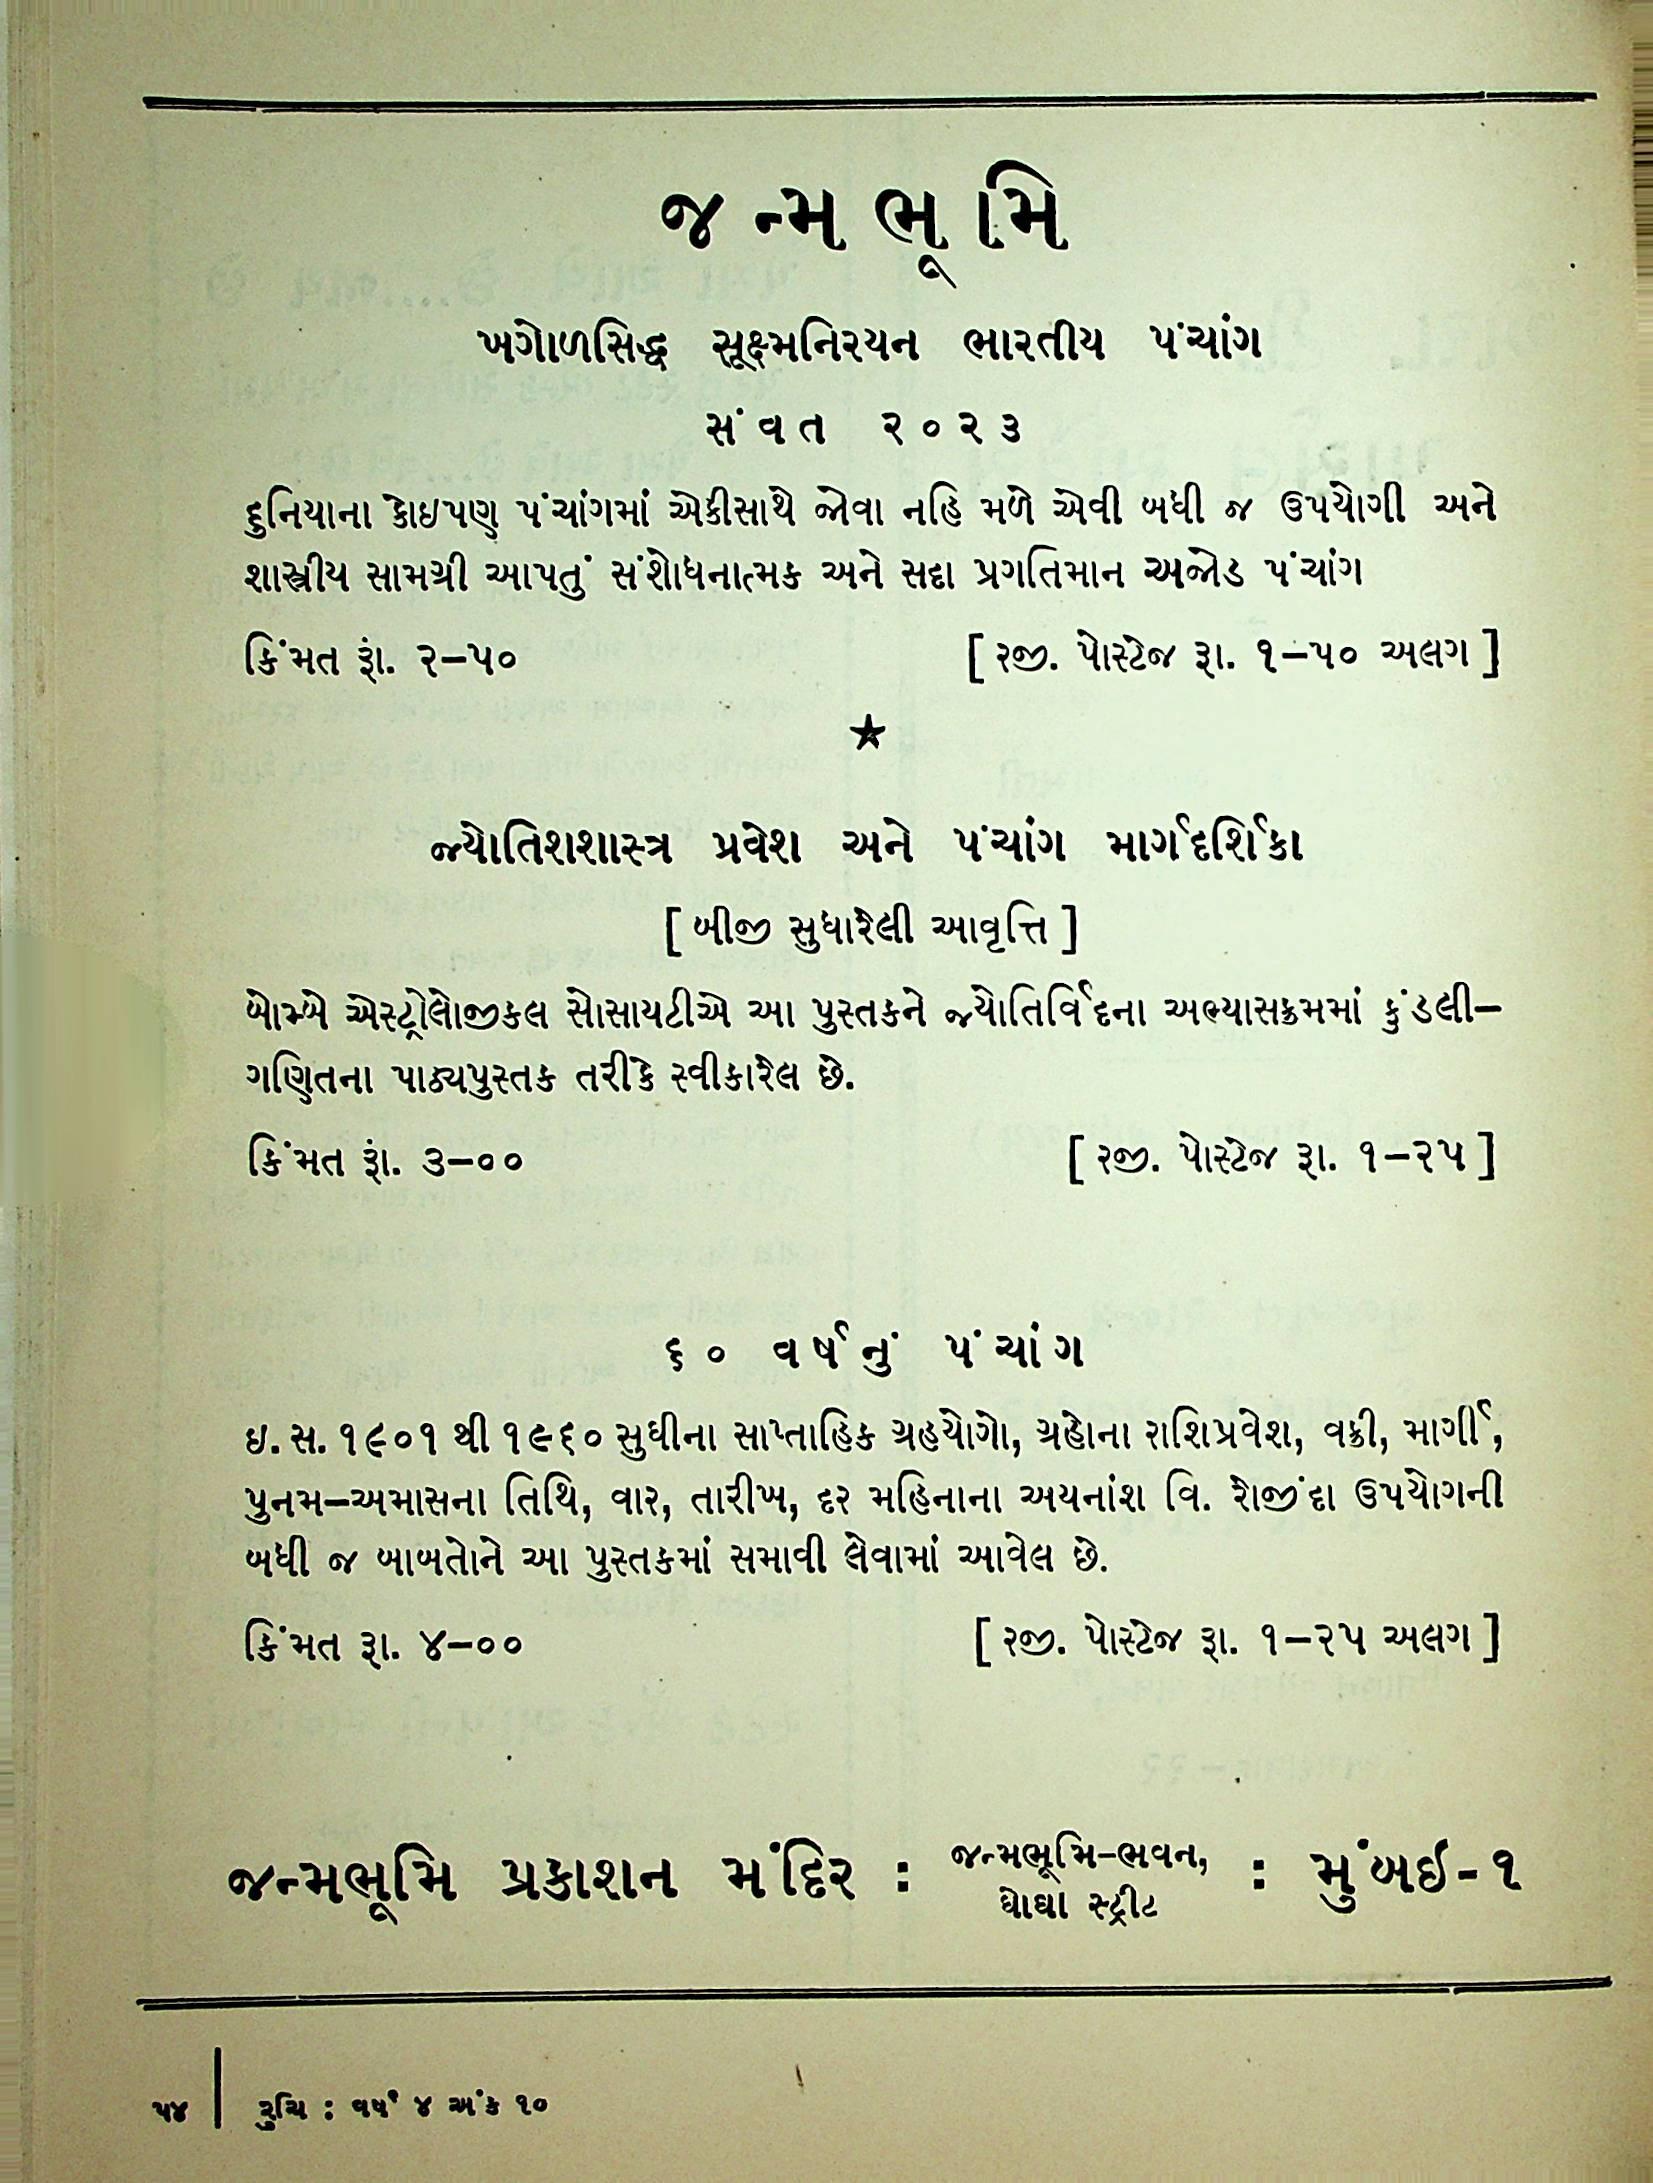 જન્મભૂમિ
ખગોળસિદ્ધ સૂક્ષ્મનિરયન ભારતીય પંચાંગ
સંવત ૨૦૨૩
દુનિયાના કોઇપણ પંચાંગમાં એકીસાથે જોવા નહિ મળે એવી બધી જ ઉપયોગી અને
શાસ્ત્રીય સામગ્રી આપતું સંશોધનાત્મક અને સદા પ્રગતિમાન અજોડ પંચાંગ
કિંમત રૂાં. ૨–૫૦ [ રજી. પોસ્ટેજ રૂા. ૧–૫૦ અલગ ]
★
જ્યોતિશશાસ્ત્ર પ્રવેશ અને પંચાંગ માર્ગદર્શિકા
[ બીજી સુધારેલી આવૃત્તિ ]
બોમ્બે એસ્ટ્રોલોજીકલ સોસાયટીએ આ પુસ્તકને જ્યોતિર્વિદના અભ્યાસક્રમમાં કુંડલી–
ગણિતના પાઠ્યપુસ્તક તરીકે સ્વીકારેલ છે.
કિંમત રૂાં. ૩–૦૦ [ રજી. પોસ્ટેજ રૂા. ૧–૨૫ ]
૬૦ વર્ષનું પંચાંગ
ઇ. સ. ૧૯૦૧ થી ૧૯૬૦ સુધીના સાપ્તાહિક ગ્રહયોગો, ગ્રહોના રાશિપ્રવેશ, વક્રી, માર્ગી,
પુનમ–અમાસના તિથિ, વાર, તારીખ, દર મહિનાના અયનાંશ વિ. રોજીંદા ઉપયોગની
બધી જ બાબતોને આ પુસ્તકમાં સમાવી લેવામાં આવેલ છે.
કિંમત રૂા. ૪–૦૦ [ રજી. પોસ્ટેજ રૂા. ૧–૨૫ અલગ ]
જન્મભૂમિ પ્રકાશન મંદિર : જન્મભૂમિ–ભવન, ઘોઘા સ્ટ્રીટ : મુંબઇ-૧
૫૪ | રુચિ : વર્ષ ૪ અંક ૧૦